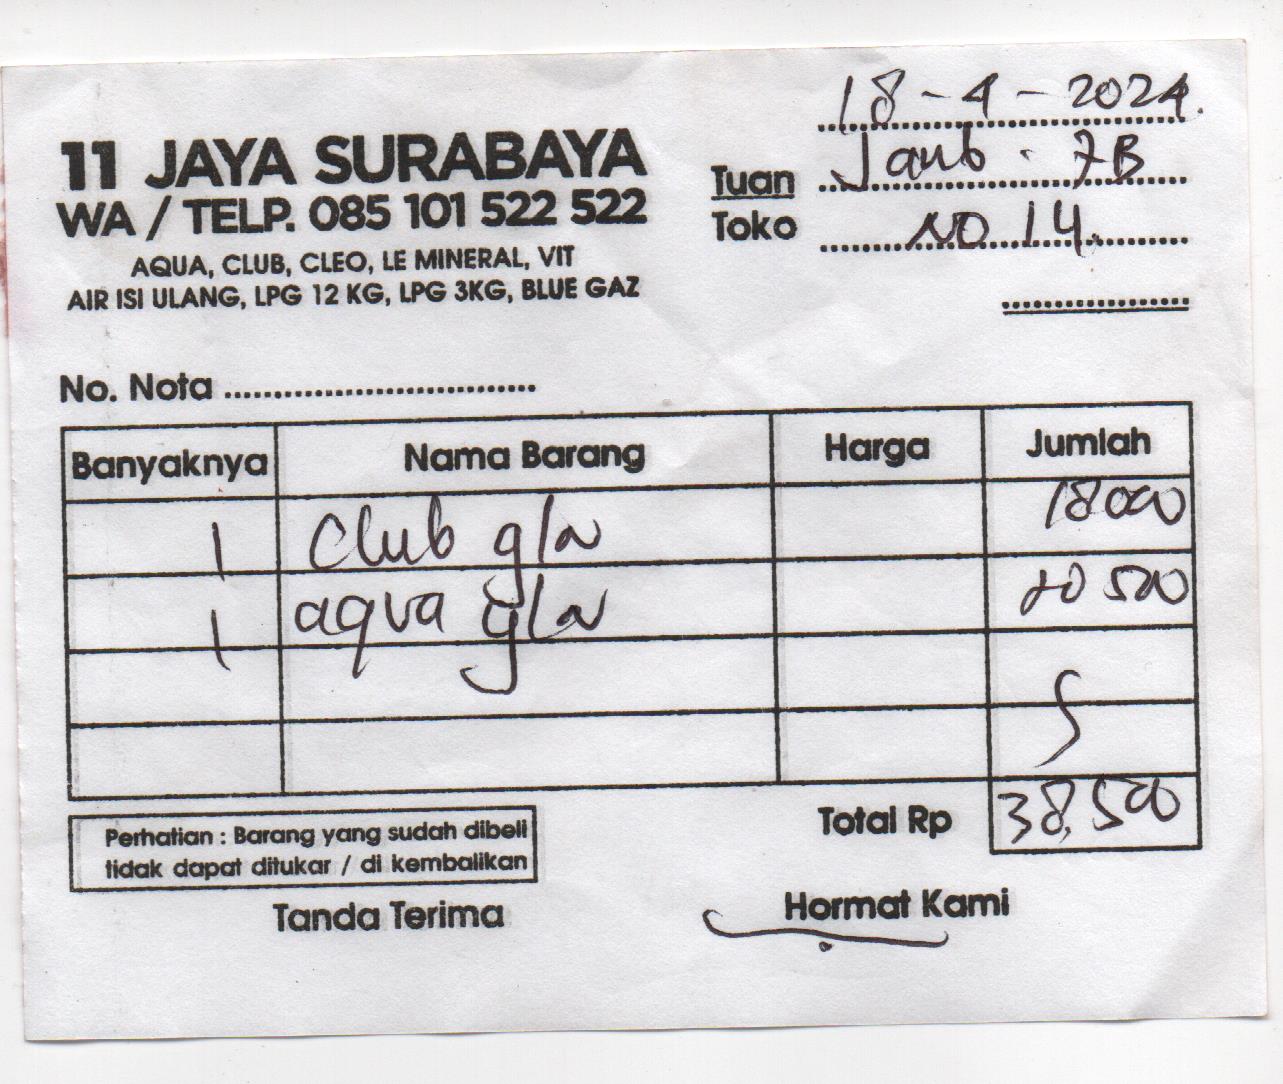 18-4-2024.
11 JAYA SURABAYA
WA / TELP. 085 101 522 522
AQUA, CLUB, CLEO, LE MINERAL, VIT
AIR ISI ULANG, LPG 12 KG, LPG 3KG, BLUE GAZ
Tuan 7B
Toko NO 14.
No. Nota
Banyaknya Nama Barang Harga Jumlah
1 Club 18000
1 aqua 20 500
Total Rp 38,500
Perhatian : Barang yang sudah dibeli
tidak dapat ditukar / di kembalikan
Tanda Terima Hormat Kami